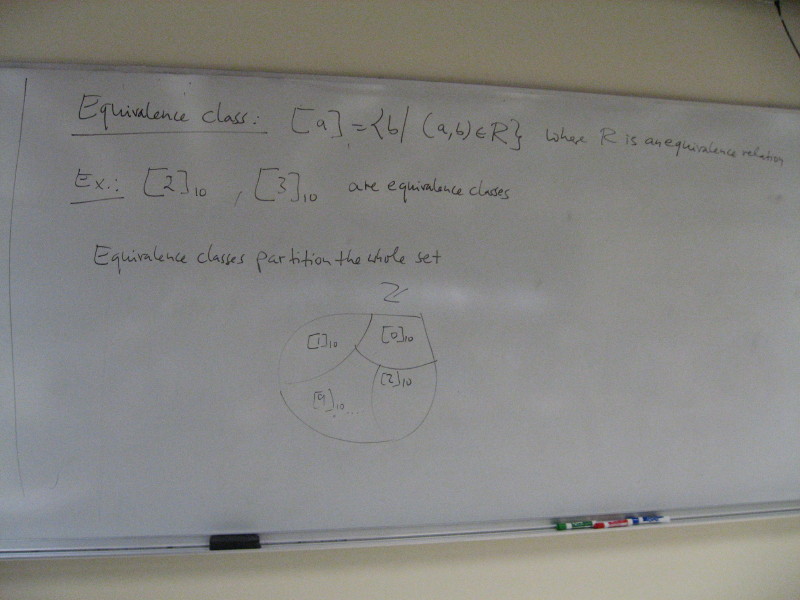 Equivalence class: [a] = {b | (a,b) ∈ R} where R is an equivalence relation
Ex.: [2]₁₀ , [3]₁₀ are equivalence classes
Equivalence classes partition the whole set
ℤ
[1]₁₀ [0]₁₀
[2]₁₀
[9]₁₀ ....